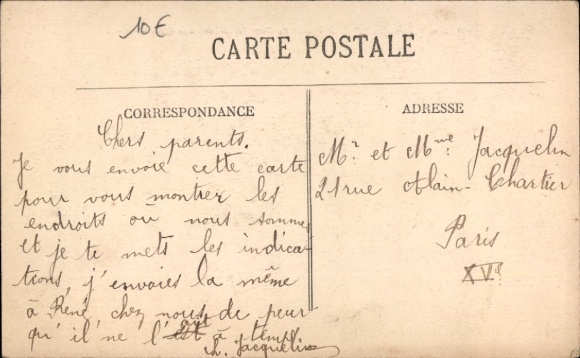 10€
CARTE POSTALE
CORRESPONDANCE
Chers parents.
Je vous envoie cette carte
pour vous montrer les
endroits ou nous somme
et je te mets les indica-
tions, j'envoies la même
à René, chez nous de peur
qu'il ne l'est à temps
Ch. Jacquelin
ADRESSE
Mr. et Mme. Jacquelin
21 rue Alain-Chartier
Paris
XVe